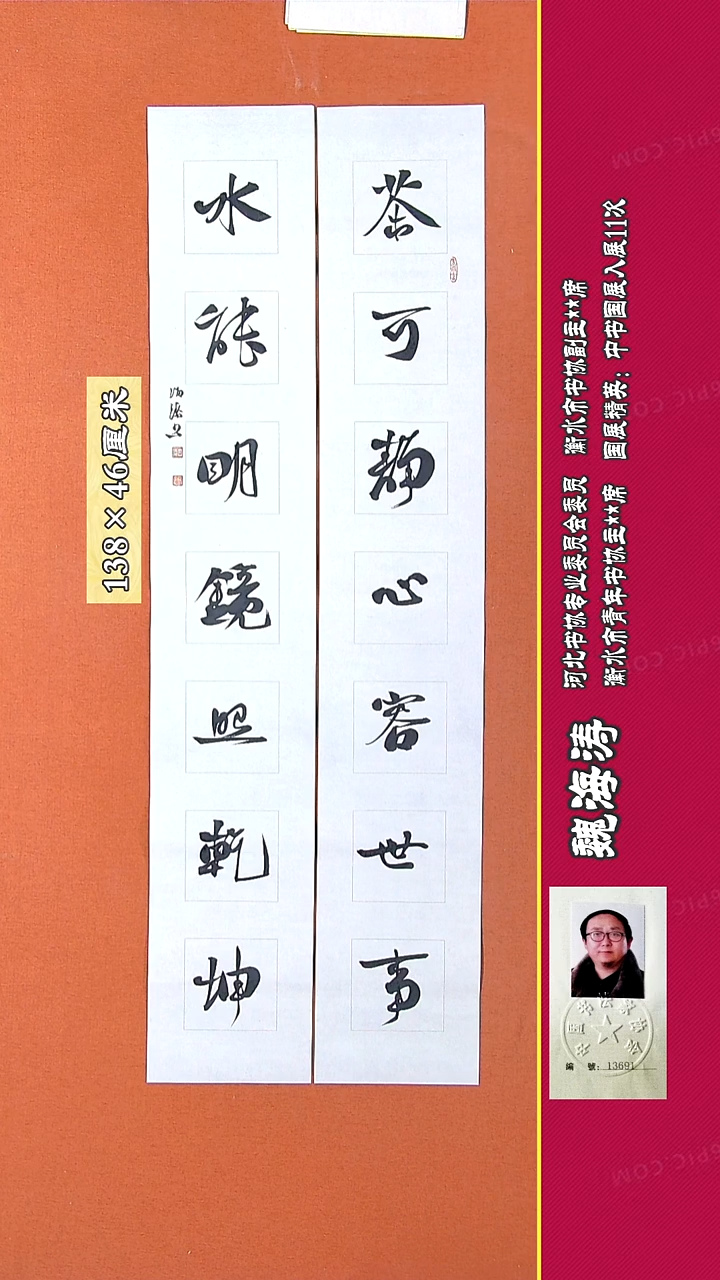 茶可静心容世事
水能明鏡照乾坤
海涛书
138×46厘米
河北书协专业委员会委员 衡水市书协副主**席
衡水市青年书协主**席 国展精英：中书国展入展11次
魏海涛
編 號：13691